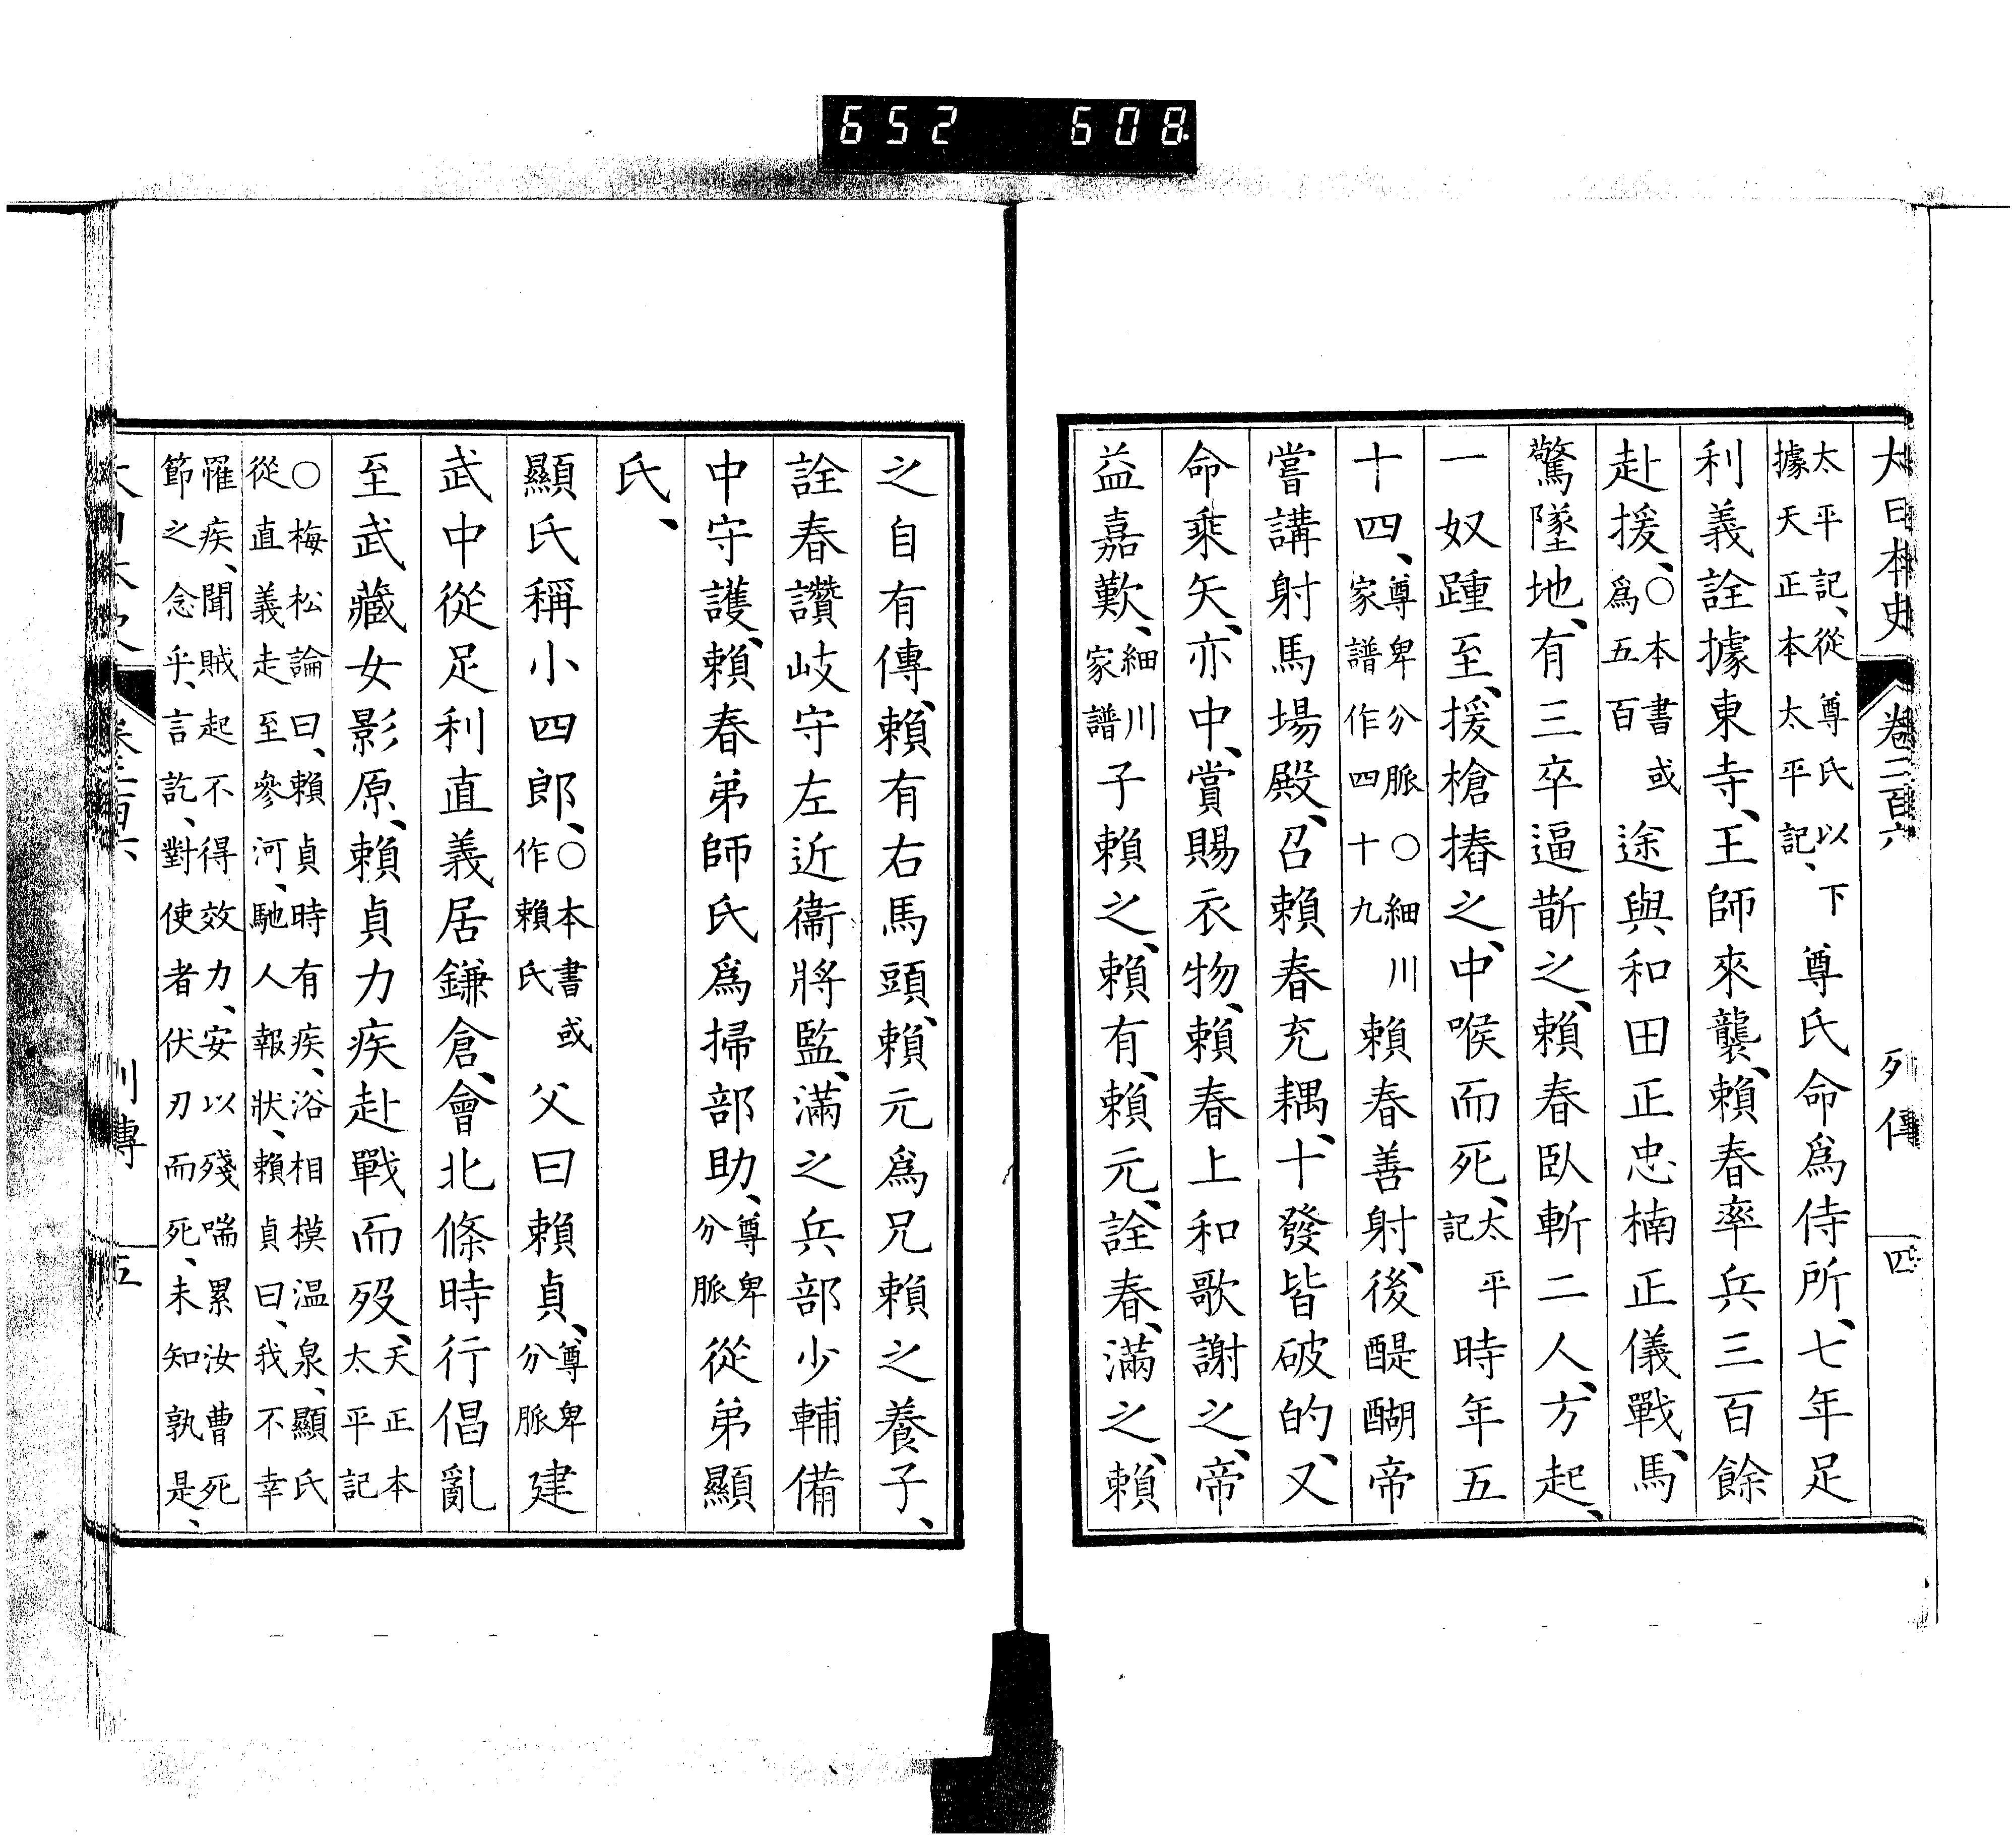 652 608
大日本史 卷二百六 列傳 四
太平記、從尊氏以下
據天正本太平記、
尊氏命爲侍所、七年足
利義詮據東寺、王師來襲、賴春率兵三百餘
赴援、
○本書或
爲五百
途與和田正忠楠正儀戰、馬
驚墜地、有三卒逼斮之、賴春臥斬二人、方起、
一奴踵至、援槍摏之、中喉而死、
太平
記
時年五
十四、
尊卑分脈○細川
家譜作四十九
賴春善射、後醍醐帝
嘗講射馬場殿、召賴春充耦、十發皆破的、又
命乘矢、亦中、賞賜衣物、賴春上和歌謝之、帝
益嘉歎、
細川
家譜
子賴之、賴有、賴元、詮春、滿之、賴
之自有傳、賴有右馬頭、賴元爲兄賴之養子、
詮春讚岐守左近衞將監、滿之兵部少輔備
中守護、賴春弟師氏爲掃部助、
尊卑
分脈
從弟顯
氏、
顯氏稱小四郎、
○本書或
作賴氏
父曰賴貞、
尊卑
分脈
建
武中從足利直義居鎌倉、會北條時行倡亂
至武藏女影原、賴貞力疾赴戰而歿、
天正本
太平記
○梅松論曰、賴貞時有疾、浴相模温泉、顯氏
從直義走至參河、馳人報狀、賴貞曰、我不幸
罹疾、聞賊起不得效力、安以殘喘累汝曹死
節之念乎、言訖、對使者伏刃而死、未知孰是、
列傳 五